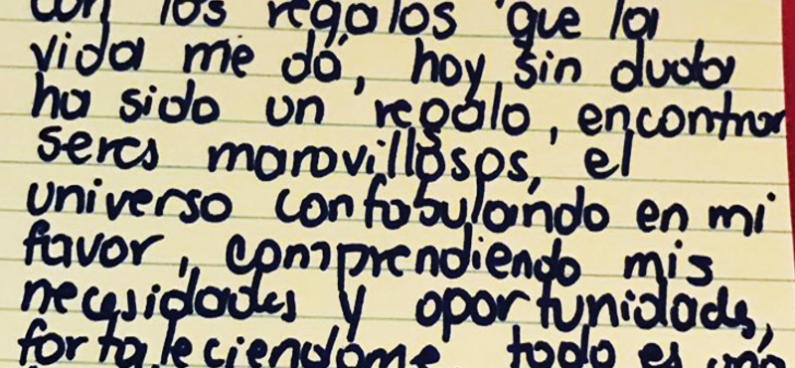 con los regalos que la
vida me dá, hoy sin duda
ha sido un regalo, encontrar
seres maravillosos, el
universo confabulando en mi
favor, comprendiendo mis
necesidades y oportunidades,
fortaleciendome, todo es una